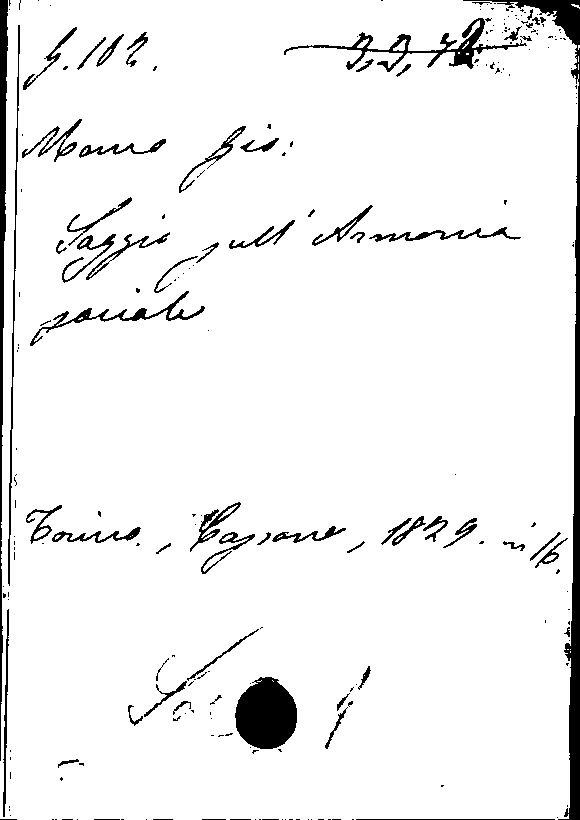 G.102. 3,3,72
Mauro Gio:
Saggio sull' Armonia
sociale
Torino, Cassone, 1829. in 16.
Soc